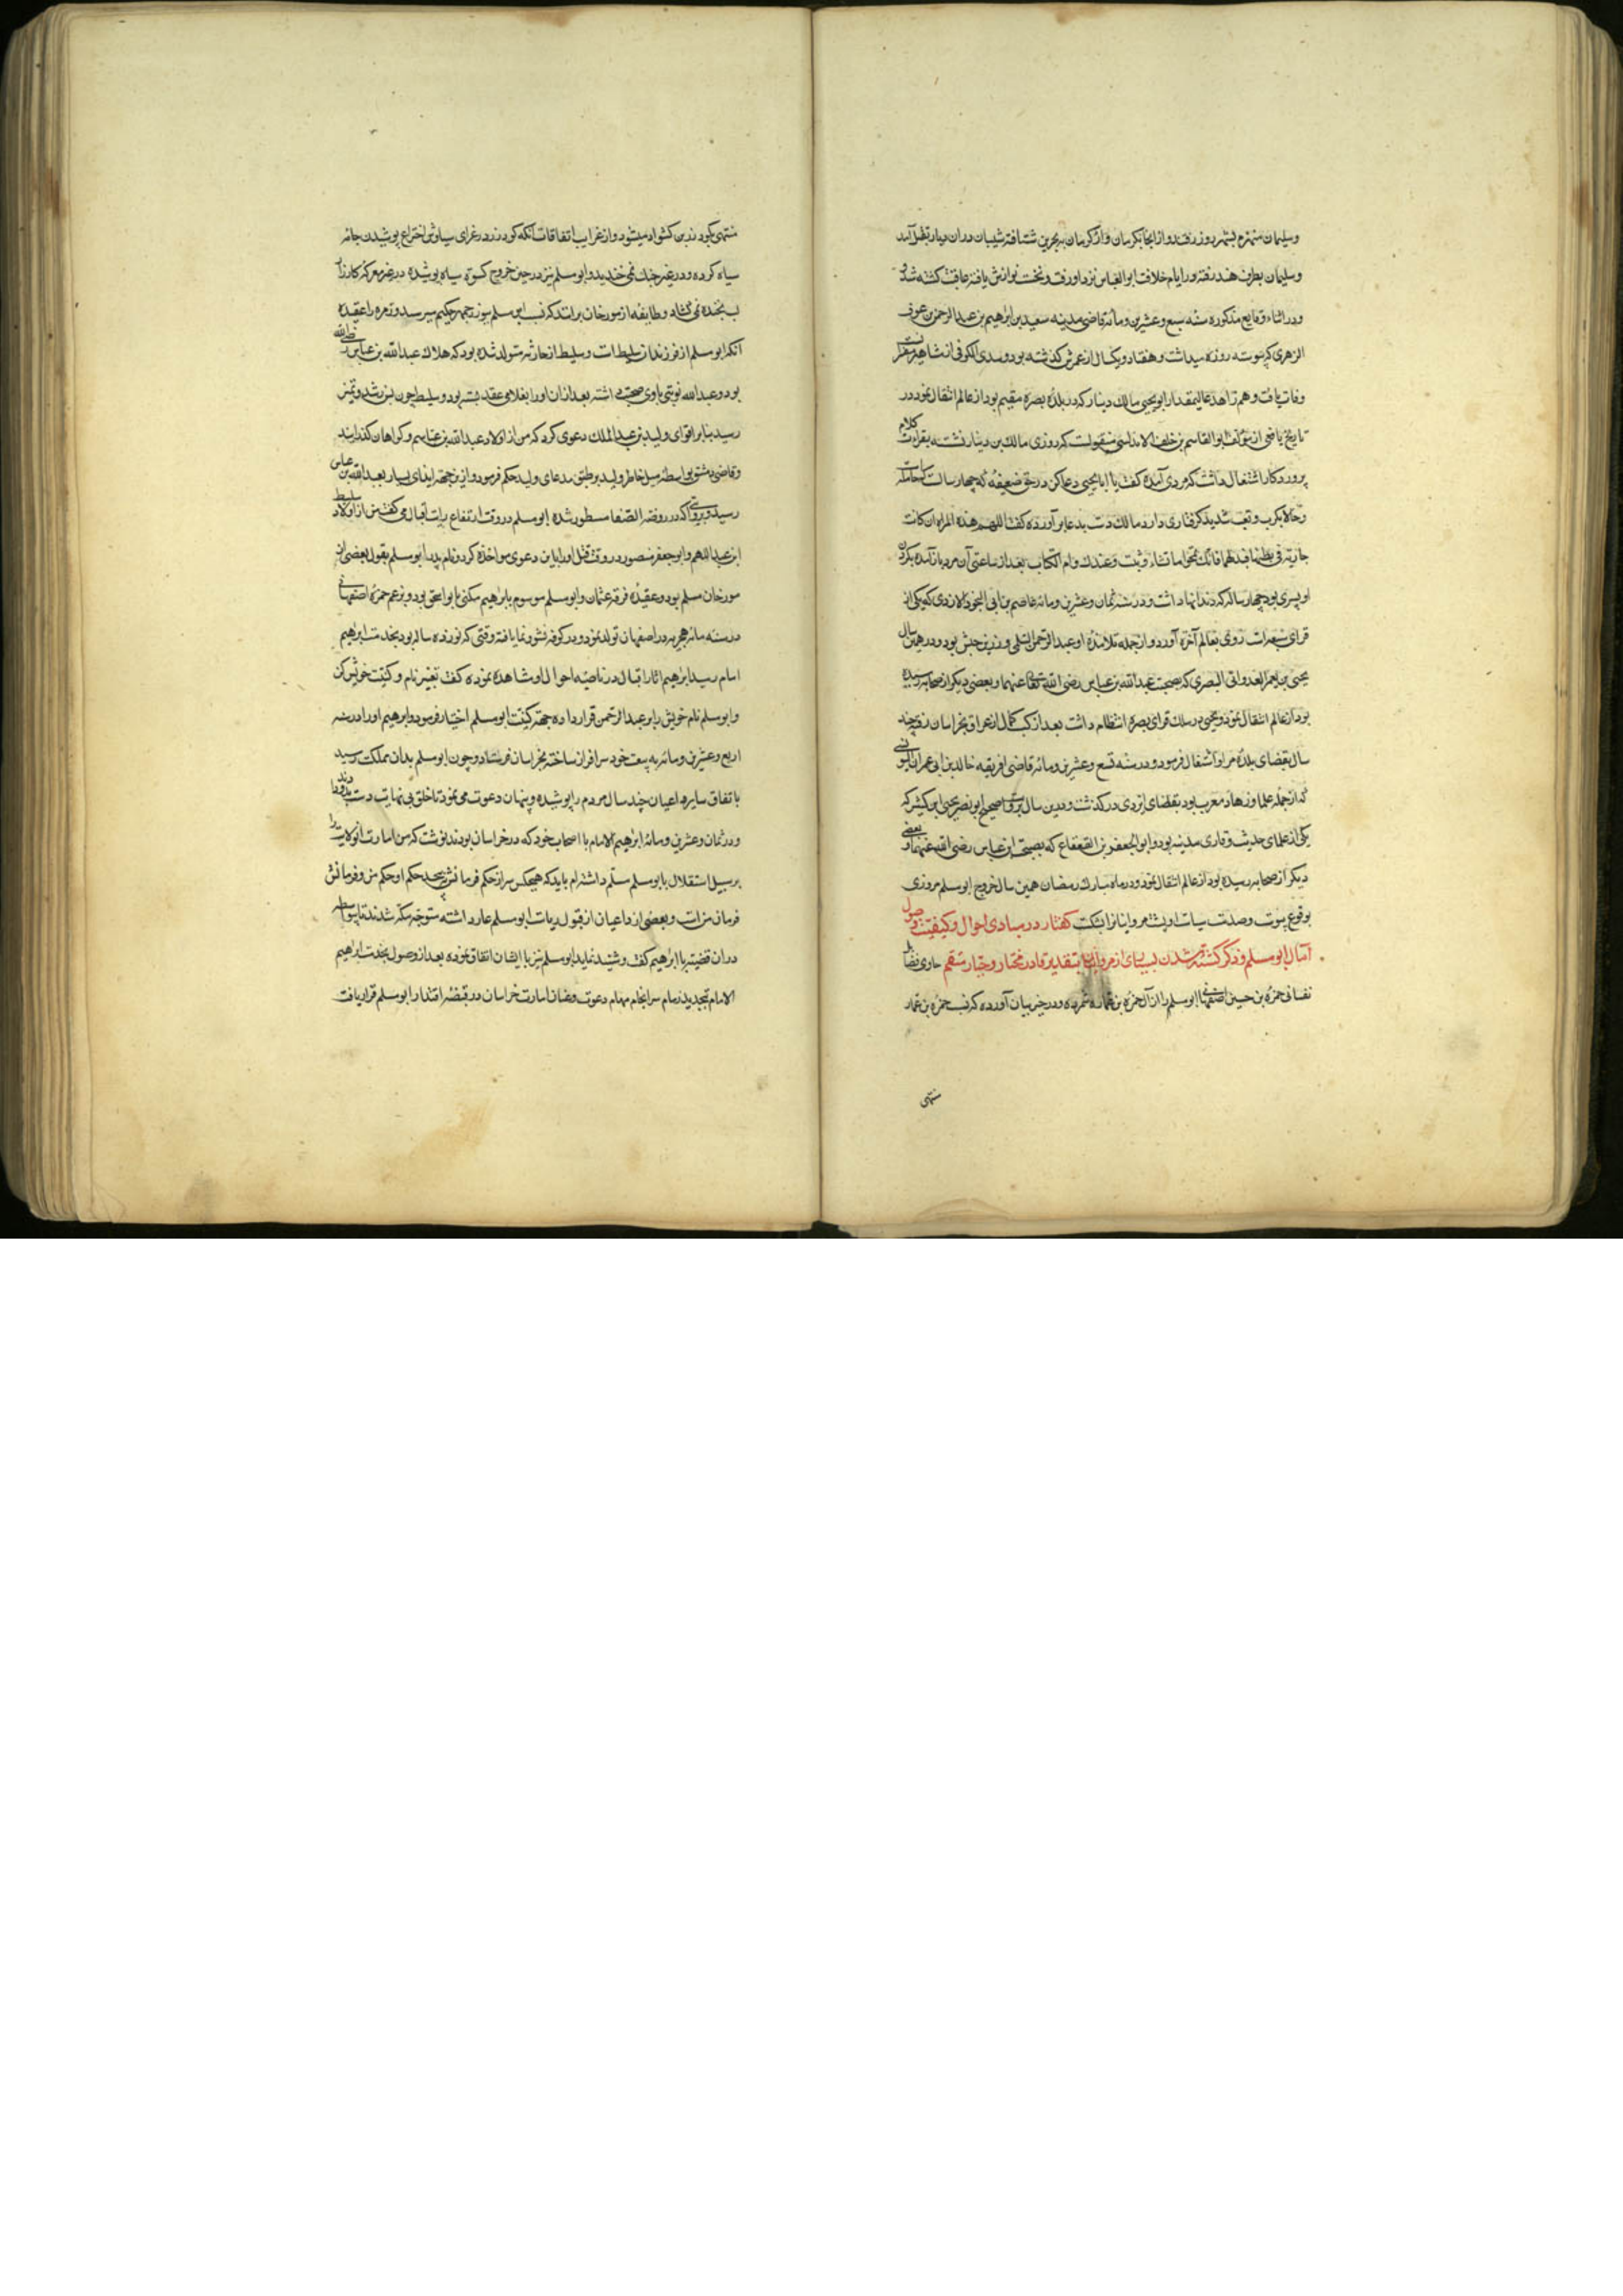 وسلیمان منهزم بشهر روز رفت و از انجا بکرمان و از کرمان ببحرین شتافته شیبان دران دیار بقتل آمد
وسلیمان بطرف هند رفته در ایام خلافت ابو العباس نزد او رفت و نخست نوازش یافته عاقبت کشته شد و
ودر اثناء وقایع مذکوره سنه سبع وعشرین ومأته قاضی مدینه سعید بن ابراهیم بن عبد الرحمن عوف
الزهری که پیوسته روزه میداشت و هفتاد و یکسال از عمرش گذشته بود و سدی الکوفی از مشاهیر مفسر نست
وفات یافت و هم زاهد عالیمقدار ابو یحیی مالک دینار که در بلدهٔ بصره مقیم بود از عالم انتقال نمود در
تاریخ یافعی از مؤلف ابو القاسم بن خلف الاندلسی منقولست که روزی مالک بن دینار نشسته بقراءت کلام
پروردکار اشتغال داشت که مردی آمده کفت یا ابا یحیی دعا کن در حق ضعیفهٔ که چهار سالست که حامله است
وحالا بکرب وتعب شدید کرفتاری دارد مالک دست بدعا بر آورده کفت اللهم هذه المراه ان کانت
جاریة فی بطنها فبدلها فانک تمحوا ما تشاء وتثبت وعندک وام الکتاب بعد از ساعتی آن مرد باز آمده بکردن
او پسری بود چهار ساله که دندانها داشت و در سنه ثمان وعشرین ومأته عاصم بن ابی النجود الازدی که یکی از
قرای سبعه است روی بعالم آخرة آورد و از جمله تلامذهٔ او عبد الرحمن السلمی و زر بن حبش بود و در همین سال
یحیی بن یعمر العدوانی البصری که بصحبت عبد الله بن عباس رضی الله تعالی عنهما و بعضی دیکر از صحابه رسیده
بود از عالم انتقال نمود و یحیی در سلک قرای بصره انتظام داشت بعد از کسب کمال از عراق بخراسان رفته چند
سال بقضای بلدهٔ مرو اشتغال فرمود و در سنه تسع وعشرین ومأته قاضی افریقیه خالد بن ابی عمران التونسی
که از جمله علما و زهاد مغرب بود بقضای ایزدی در کذشت و درین سال بروایت اصح ابو نصر یحیی ابن کثیر که
یکی از علمای حدیث وقاری مدینه بود و ابو الجعفر بن القعقاع که بصحبت ابن عباس رضی الله عنهما و بعضی
دیکر از صحابه رسیده بود از عالم انتقال نمود و در ماه مبارک رمضان همین سال خروج ابو مسلم مروزی
بوقوع پیوست وصدمت سیاست او پشت مروانیانرا بشکست کفتار در مبادی احوال وکیفیت وصول
آمال ابو مسلم وذکر کشته شدن بسیاری از مروانیان بتقدیر قادر مختار وجبار منتقم حاوی فضایل
نفسانی حمزة بن حسین اصفهانی ابو مسلم را از آل حمزة بن عماره شمرده و در حیز بیان آورده که نسب حمزة بن عمار
منتهی
منتهی بکودرز بن کشواد میشود و از غرایب اتفاقات آنکه کودرز در عزای سیاوش اختراع پوشیدن جامه
سیاه کرده و در غیر جنک نمی خندید و ابو مسلم نیز در حین خروج کسوة سیاه پوشیده در غیر معرکهٔ کارزار
لب بخنده نمی کشاد و طایفه از مورخان بر انند که نسب ابو مسلم ببوزرجمهر حکیم میرسد و زمره را عقیده
آنکه ابو مسلم از فرزندان سلیط است و سلیط از جاریهٔ متولد شده بود که ملک عبد الله بن عباس رضی الله
بود و عبد الله نوبتی با وی صحبت داشته بعد از ان او را بغلامی عقد بسته بود و سلیط چون بسن رشد و تمیز
رسید بنابر اقوای ولید بن عبد الملک دعوی کرد که من از اولاد عبد الله بن عباسم وکواهان کذرانید
وقاضی دمشق بواسطه میل خاطر ولید بر طبق مدعای ولید حکم فرمود و از ین جهة ایذای بسیار بعبد الله بن علی
رسید و بروایتی که در روضة الصفا مسطور شده ابو مسلم در وقت ارتفاع رایت اقبال می کفت من از اولاد سلیط
ابن عبد اللهم و ابو جعفر منصور در وقت قتل او را باین دعوی مواخذه کرد و نام پدر ابو مسلم بقول بعضی از
مورخان مسلم بود و عقیدهٔ فرقهٔ عثمان و ابو مسلم موسوم بابراهیم مکنی بابو اسحق بود و بزعم حمزهٔ اصفهانی
در سنه مأته هجریه در اصفهان تولد نمود و در کوفه نشو و نما یافته وقتی که نوزده ساله بود بخدمت ابراهیم
امام رسید ابراهیم اثار اقبال در ناصیهٔ احوال او مشاهده نموده کفت تغییر نام و کنیت خویش کن
و ابو مسلم نام خویش را بر عبد الرحمن قرار داده جهة کنیت ابو مسلم اختیار فرمود و ابراهیم او را در سنه
اربع وعشرین ومأته به بیعت خود سرافراز ساخته بخراسان فرستاد و چون ابو مسلم بدان مملکت رسید
باتفاق سایر داعیان چند سال مردم را پوشیده و پنهان دعوت می نمود تا خلق بی نهایت دست
ودر ثمان وعشرین ومأته ابراهیم الامام با اصحاب خود که در خراسان بودند نوشت که من امارت آن ولایت را
بر سبیل استقلال بابو مسلم مسلم داشته ام باید که هیچکس سر از حکم فرمانش نپیچد حکم او حکم من و فرمانش
فرمان من است و بعضی از داعیان از قبول ریاست ابو مسلم عار داشته متوجه مکه شدند تا بواسطه
دران قضیه با ابراهیم کفت و شنید نماید ابو مسلم نیز با ایشان اتفاق نموده بعد از وصول بخدمت ابراهیم
الامام تجدید زمام سرانجام مهام دعوت وعنان امارت خراسان در قبضهٔ اقتدار ابو مسلم قرار یافت